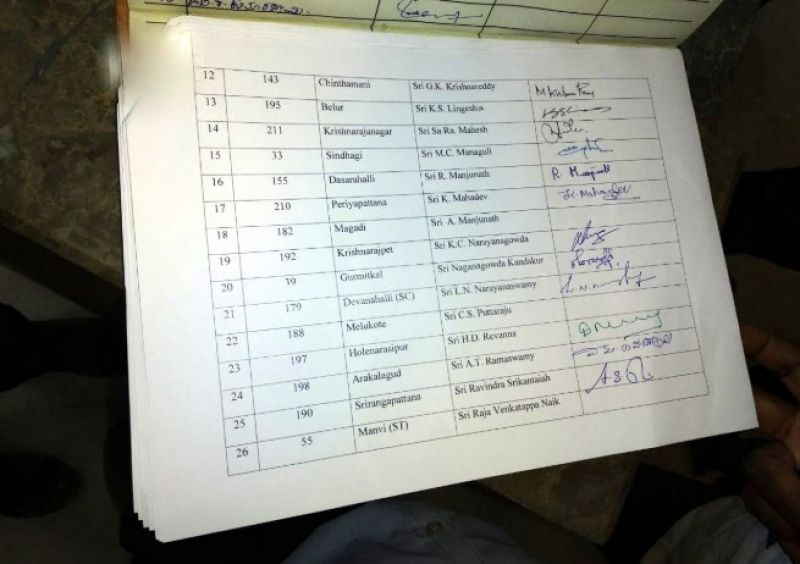 12 143 Chinthamani Sri G.K. Krishnareddy
13 195 Belur Sri K.S. Lingesha
14 211 Krishnarajanagar Sri Sa Ra. Mahesh
15 33 Sindhagi Sri M.C. Managuli
16 155 Dasarahalli Sri R. Manjunath
17 210 Periyapattana Sri K. Mahadev
18 182 Magadi Sri A. Manjunath
19 192 Krishnarajpet Sri K.C. Narayanagowda
20 39 Gurmitkal Sri Naganagowda Kandakur
21 179 Devanahalli (SC) Sri L.N. Narayanaswamy
22 188 Melukote Sri C.S. Puttaraju
23 197 Holenarasipur Sri H.D. Revanna
24 198 Arakalagud Sri A.T. Ramaswamy
25 190 Srirangapattana Sri Ravindra Srikantaiah
26 55 Manvi (ST) Sri Raja Venkatappa Naik